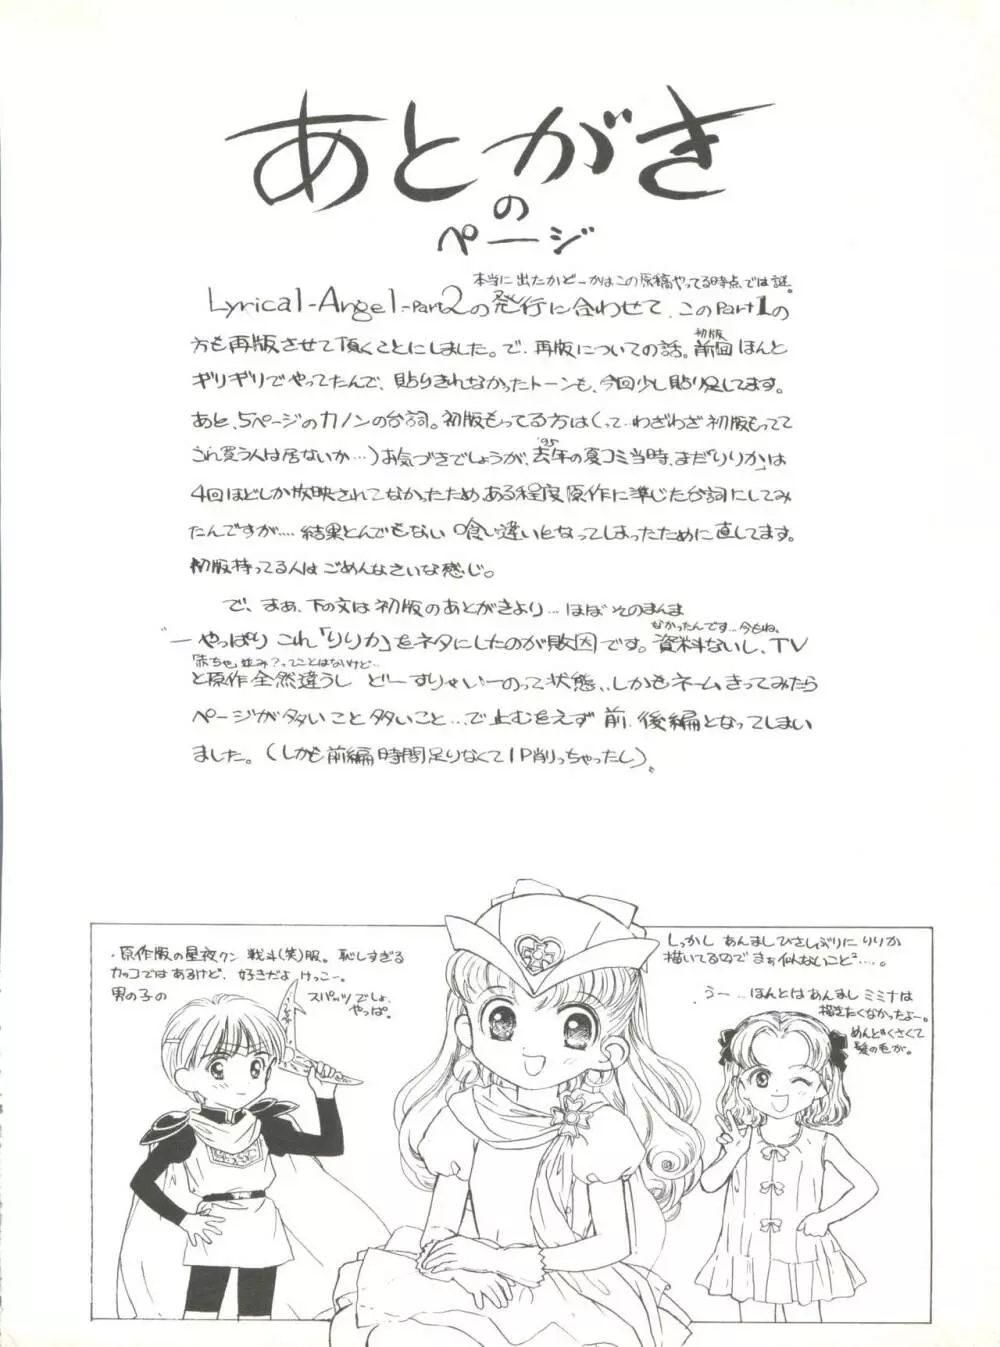 あとがき
の
ページ
本当に出たかどーかはこの原稿やってる時点では謎。
Lyrical-Angel-Part2の発行に合わせて、このPart1の
方も再版させて頂くことにしました。で、再版についての話。前回ほんと
初版
ギリギリでやってたんで、貼りきれなかったトーンも、今回少し貼り足してます。
あと、5ページのカノンの台詞。初版もってる方は(って…わざわざ初版もってて
これ買う人は居ないか…)お気づきでしょうが、去年の夏コミ当時、まだ「りりか」は
'95
4回ほどしか放映されてなかったため ある程度原作に準じた台詞にしてみ
たんですが…. 結果とんでもない喰い違いとなってしまったために直してます。
初版持ってる人はごめんなさいな感じ。
で、まぁ、下の文は初版のあとがきより… ほぼそのまんま
なかったんです…今もね、
"― やっぱりこれ「りりか」をネタにしたのが敗因です。資料ないし、TV
「赤ちゃ」並み?ってことはないけど…
と原作全然違うし どーすりゃいーのって状態、、しかもネームきってみたら
ページが多いこと多いこと…で止むをえず前、後編となってしまい
ました。(しかも前編時間足りなくて1P削っちゃったし)"
・原作版の星夜クン戦斗(笑)服。恥しすぎる
カッコではあるけど、好きだよけっこー。
男の子の
スパッツでしょ、
やっぱ。
しっかしあんましひさしぶりにりりか
描いてるのでまぁ似ないこと²….。
うー… ほんとはあんましミミナは
描きたくなかったよー。
めんどくさくて
髪の毛が。